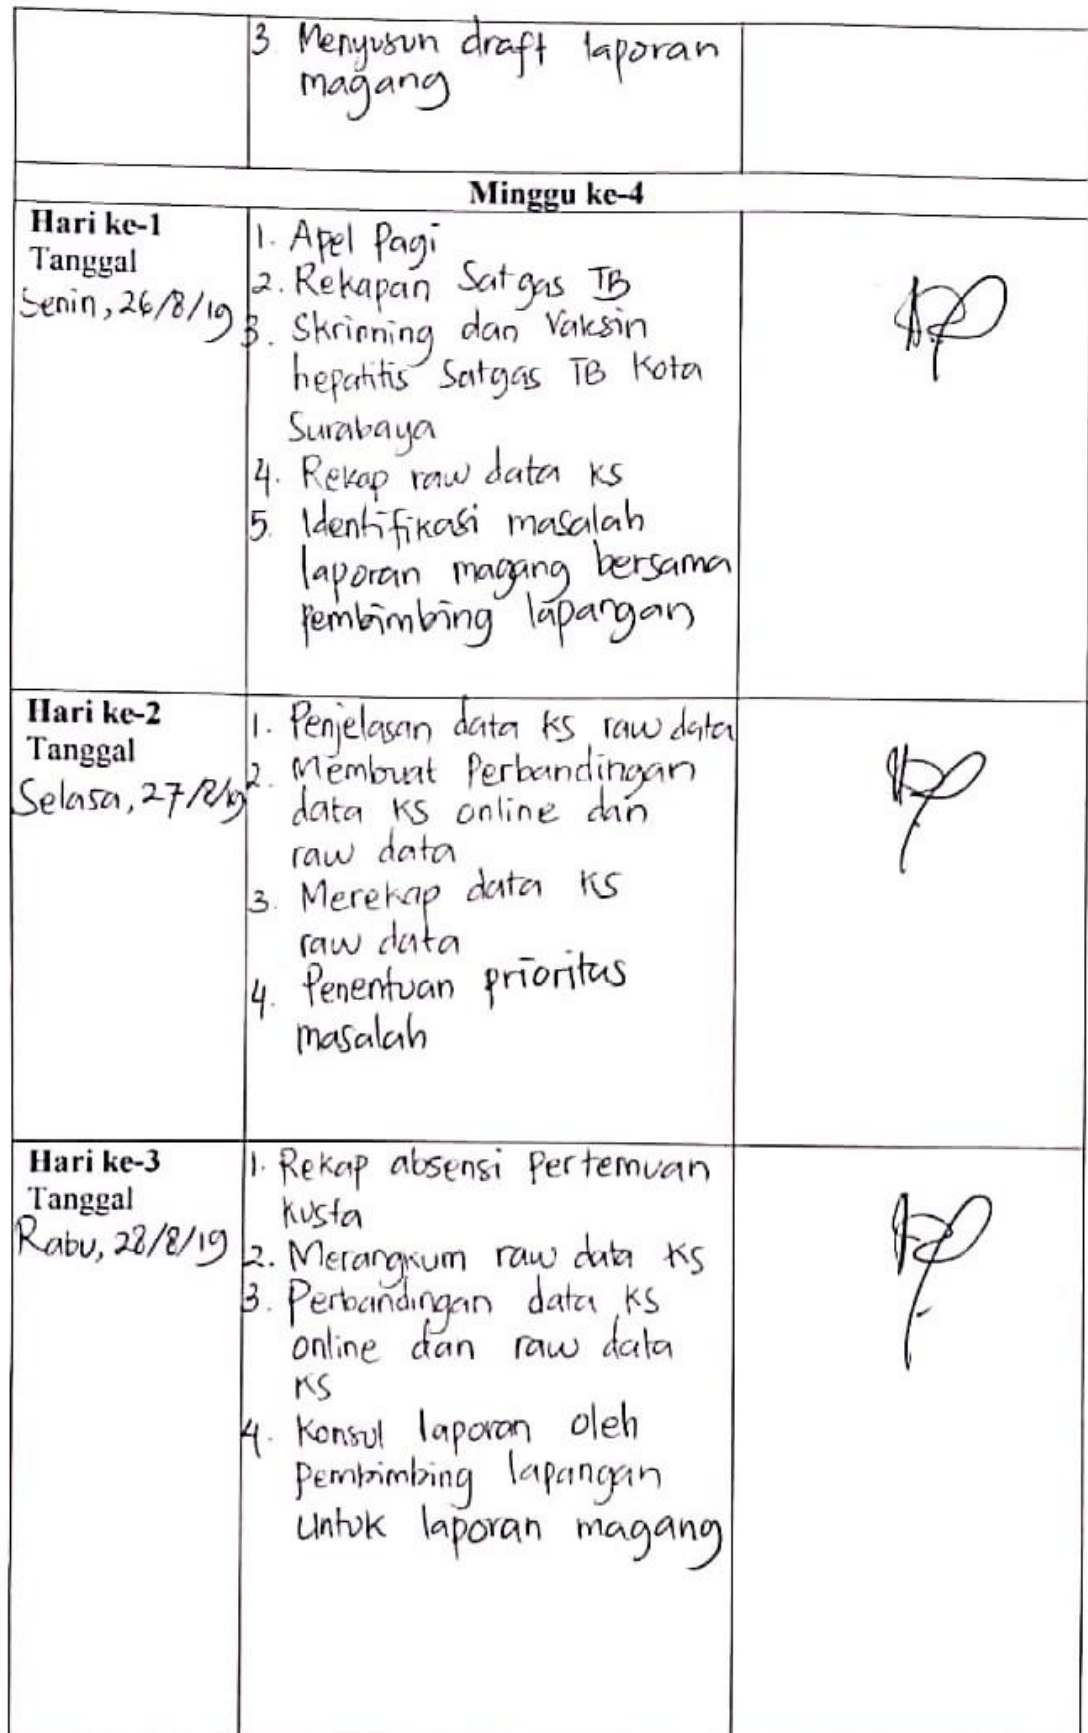 3 Menyusun draft laporan
magang
Minggu ke-4
Hari ke-1
Tanggal
Senin, 26/8/19
1. Apel Pagi
2. Rekapan Satgas TB
3. Skrinning dan Vaksin
hepatitis Satgas TB Kota
Surabaya
4. Rekap raw data KS
5. Identifikasi masalah
laporan magang bersama
Pembimbing lapangan
Hari ke-2
Tanggal
Selasa, 27/8/19
1. Penjelasan data KS raw data
2. Membuat Perbandingan
data KS online dan
raw data
3. Merekap data KS
raw data
4. Penentuan prioritas
masalah
Hari ke-3
Tanggal
Rabu, 28/8/19
1. Rekap absensi Pertemuan
Kusta
2. Merangkum raw data KS
3. Perbandingan data KS
online dan raw data
KS
4. Konsul laporan oleh
Pembimbing lapangan
Untuk laporan magang